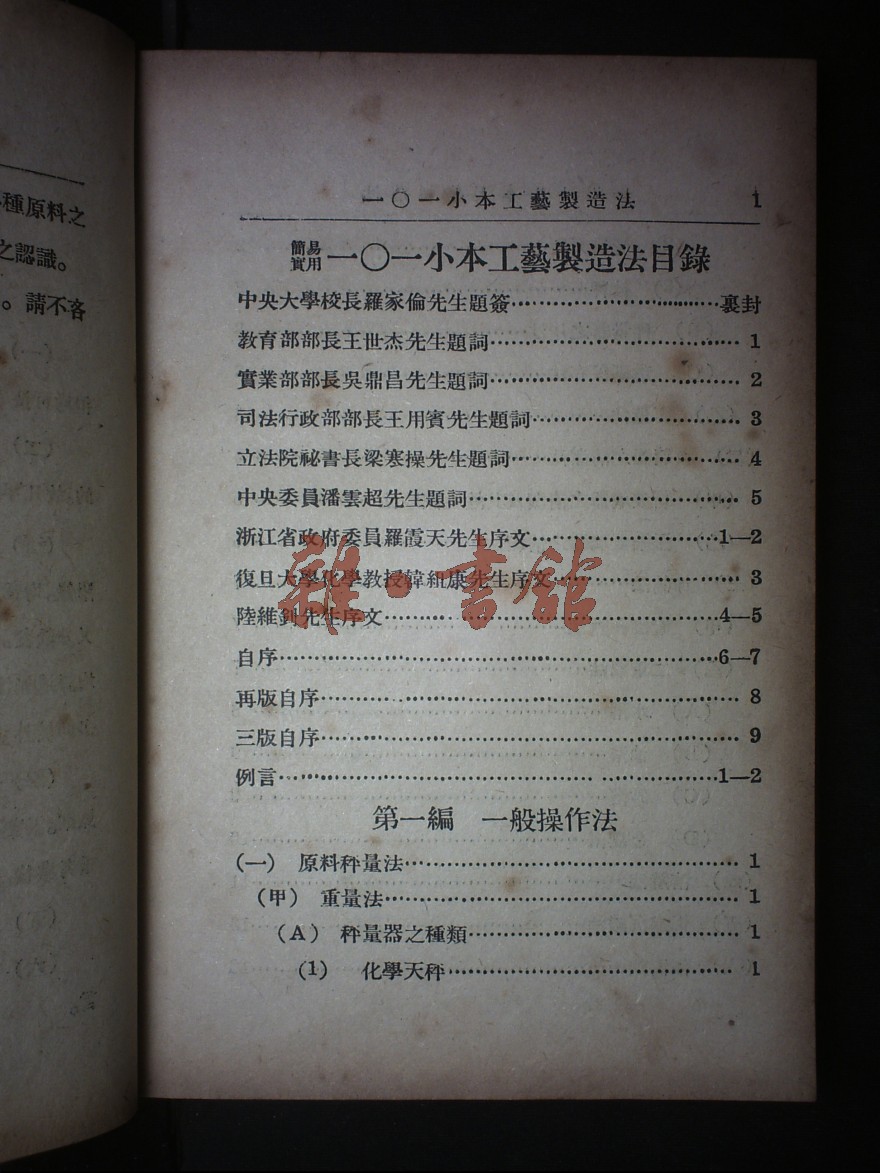 種原料之
之認識。
。請不吝
一〇一小本工藝製造法 1
簡易實用一〇一小本工藝製造法目錄
中央大學校長羅家倫先生題簽⋯⋯⋯⋯裏封
教育部部長王世杰先生題詞⋯⋯⋯⋯1
實業部部長吳鼎昌先生題詞⋯⋯⋯⋯2
司法行政部部長王用賓先生題詞⋯⋯⋯⋯3
立法院祕書長梁寒操先生題詞⋯⋯⋯⋯4
中央委員潘雲超先生題詞⋯⋯⋯⋯5
浙江省政府委員羅霞天先生序文⋯⋯⋯⋯1—2
復旦大學化學教授韓組康先生序文⋯⋯⋯⋯3
陸維釗先生序文⋯⋯⋯⋯4—5
自序⋯⋯⋯⋯6—7
再版自序⋯⋯⋯⋯8
三版自序⋯⋯⋯⋯9
例言⋯⋯⋯⋯1—2
第一編 一般操作法
(一) 原料秤量法⋯⋯⋯⋯1
(甲) 重量法⋯⋯⋯⋯1
(A) 秤量器之種類⋯⋯⋯⋯1
(1) 化學天秤⋯⋯⋯⋯1
雜·書館